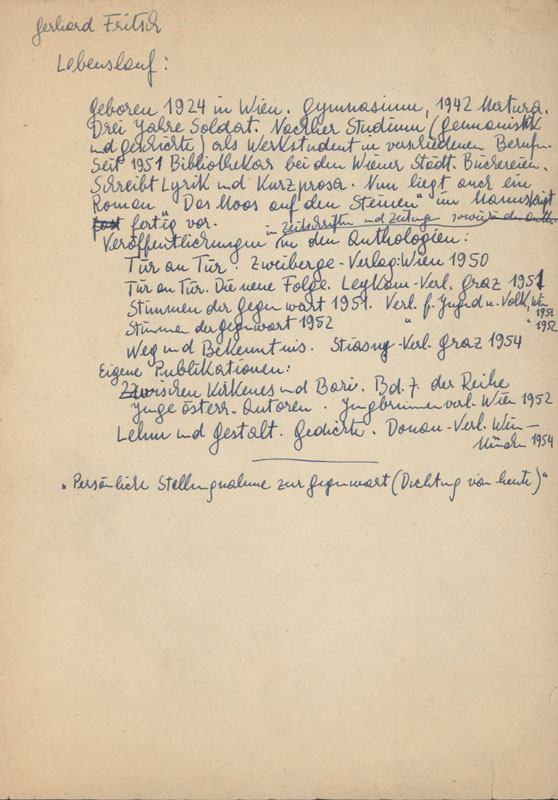 Gerhard Fritsch
Lebenslauf:
Geboren 1924 in Wien. Gymnasium, 1942 Matura.
Drei Jahre Soldat. Nachher Studium (Germanistik
und Geschichte) als Werkstudent in verschiedenen Berufen.
Seit 1951 Bibliothekar bei den Wiener Städt. Büchereien.
Schreibt Lyrik und Kurzprosa. Nun liegt auch ein
Roman „Das Moos auf den Steinen" im Manuskript
fast fertig vor.
in Zeitschriften und Zeitungen sowie in den Anth
Veröffentlichungen in den Anthologien:
Tür an Tür. Zweiberge-Verlag: Wien 1950
Tür an Tür. Die neue Folge. Leykam-Verl. Graz 1951
Stimmen der Gegenwart 1951. Verl. f. Jugend u. Volk, Wien
1951
Stimmen der Gegenwart 1952 " " 1952
Weg und Bekenntnis. Stiasny-Verl. Graz 1954
Eigene Publikationen:
Zwischen Kirkenes und Bari. Bd. 7. der Reihe
Junge österr. Autoren. Jungbrunnenverl. Wien 1952
Lehm und Gestalt. Gedichte. Donau-Verl. Wien –
München 1954
„Persönliche Stellungnahme zur Gegenwart (Dichtung von heute)"